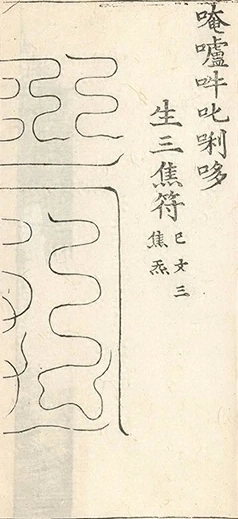 唵嚧吽叱唎哆
生三焦符
三
焦炁